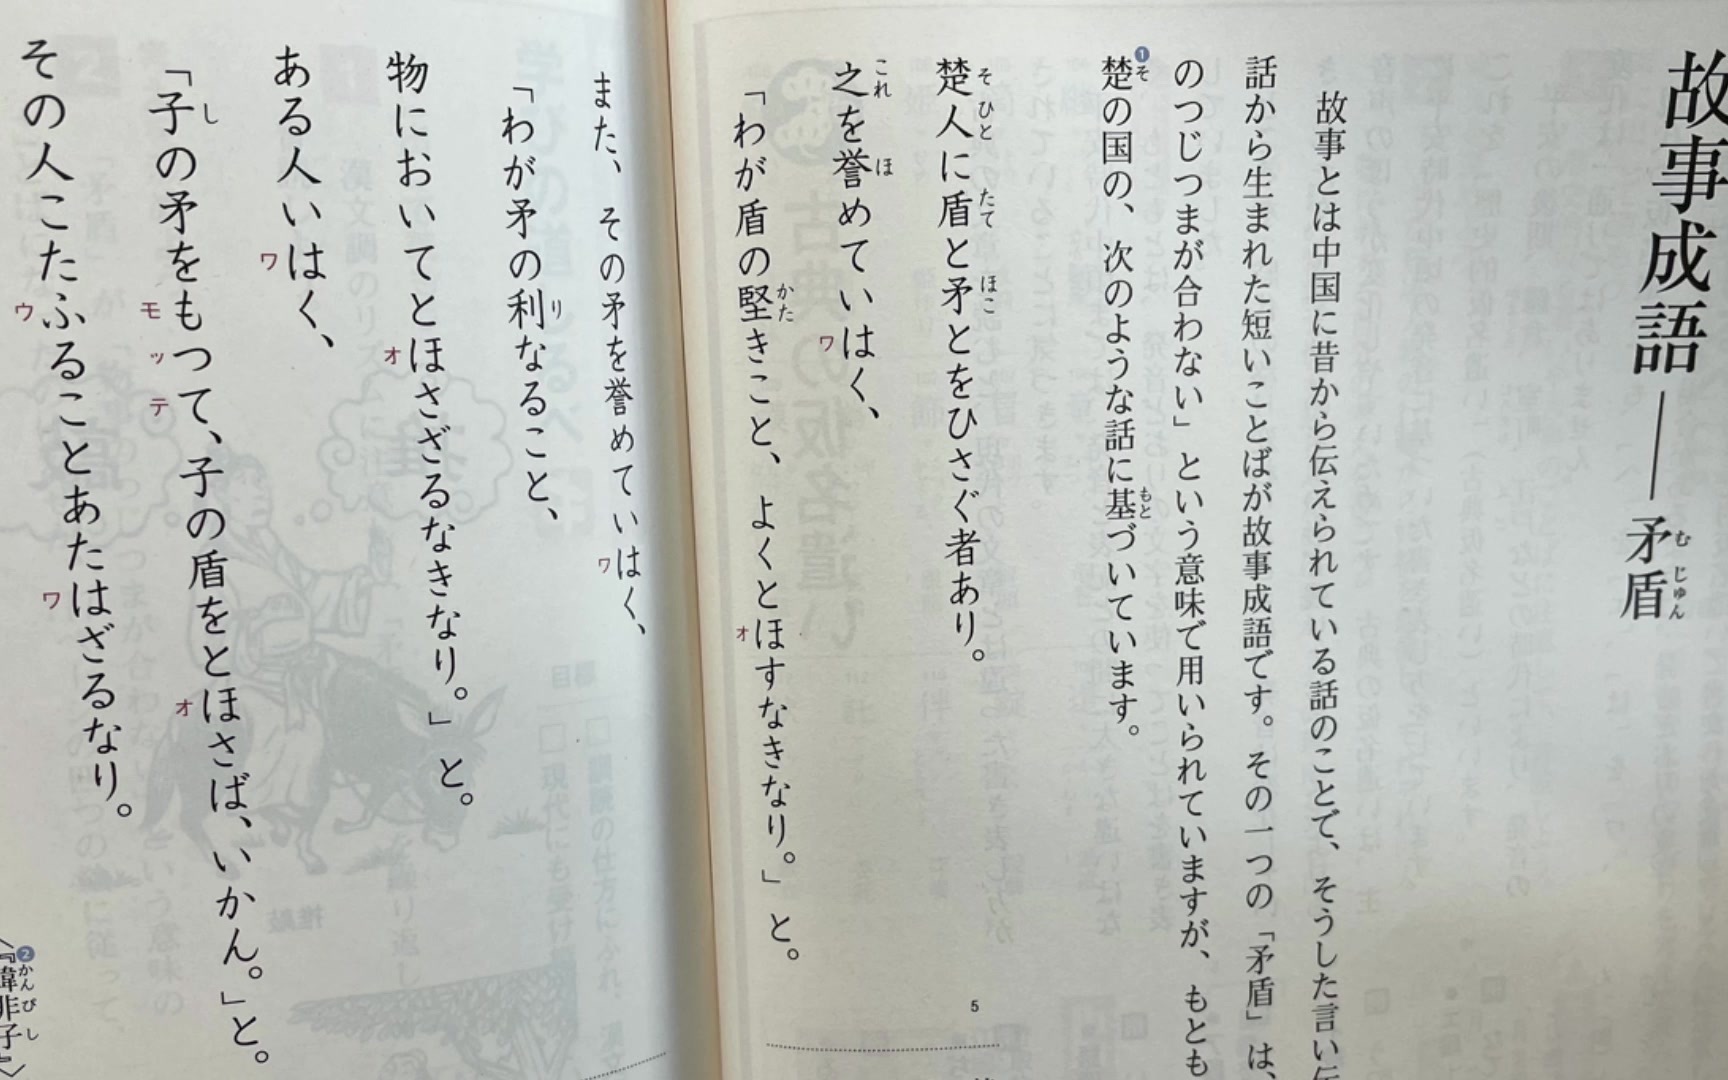 故事成語――矛盾
むじゅん
故事とは中国に昔から伝えられている話のことで、そうした言い伝
話から生まれた短いことばが故事成語です。その一つの「矛盾」は、
のつじつまが合わない」という意味で用いられていますが、もとも
❶楚の国の、次のような話に基づいています。
そ
もと
楚人に盾と矛とをひさぐ者あり。
そひと
たて
ほこ
之を誉めていはく、
これ
ほ
ワ
「わが盾の堅きこと、よくとほすなきなり。」と。
かた
オ
5
また、その矛を誉めていはく、
ワ
「わが矛の利なること、
り
物においてとほさざるなきなり。」と。
オ
ある人いはく、
ワ
「子の矛をもつて、子の盾をとほさば、いかん。」と。
し
モッテ
オ
その人こたふることあたはざるなり。
ウ
ワ
〈❷『韓非子』〉
かんぴし